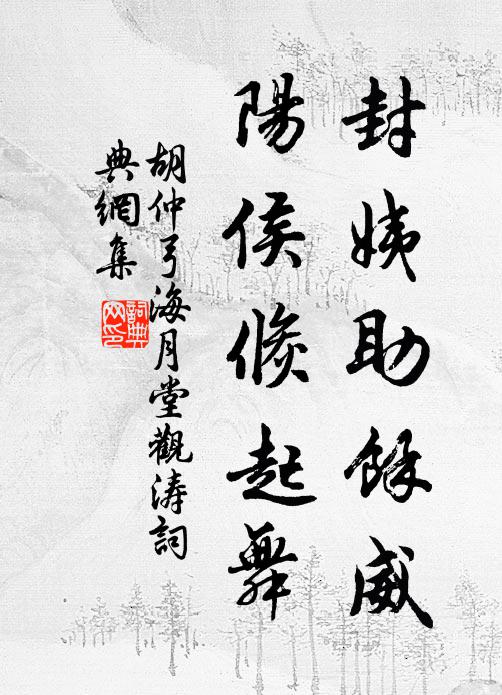 封姨助餘威
陽侯倏起舞
胡仲弓海月堂觀濤詞
典網集
詞典
网印